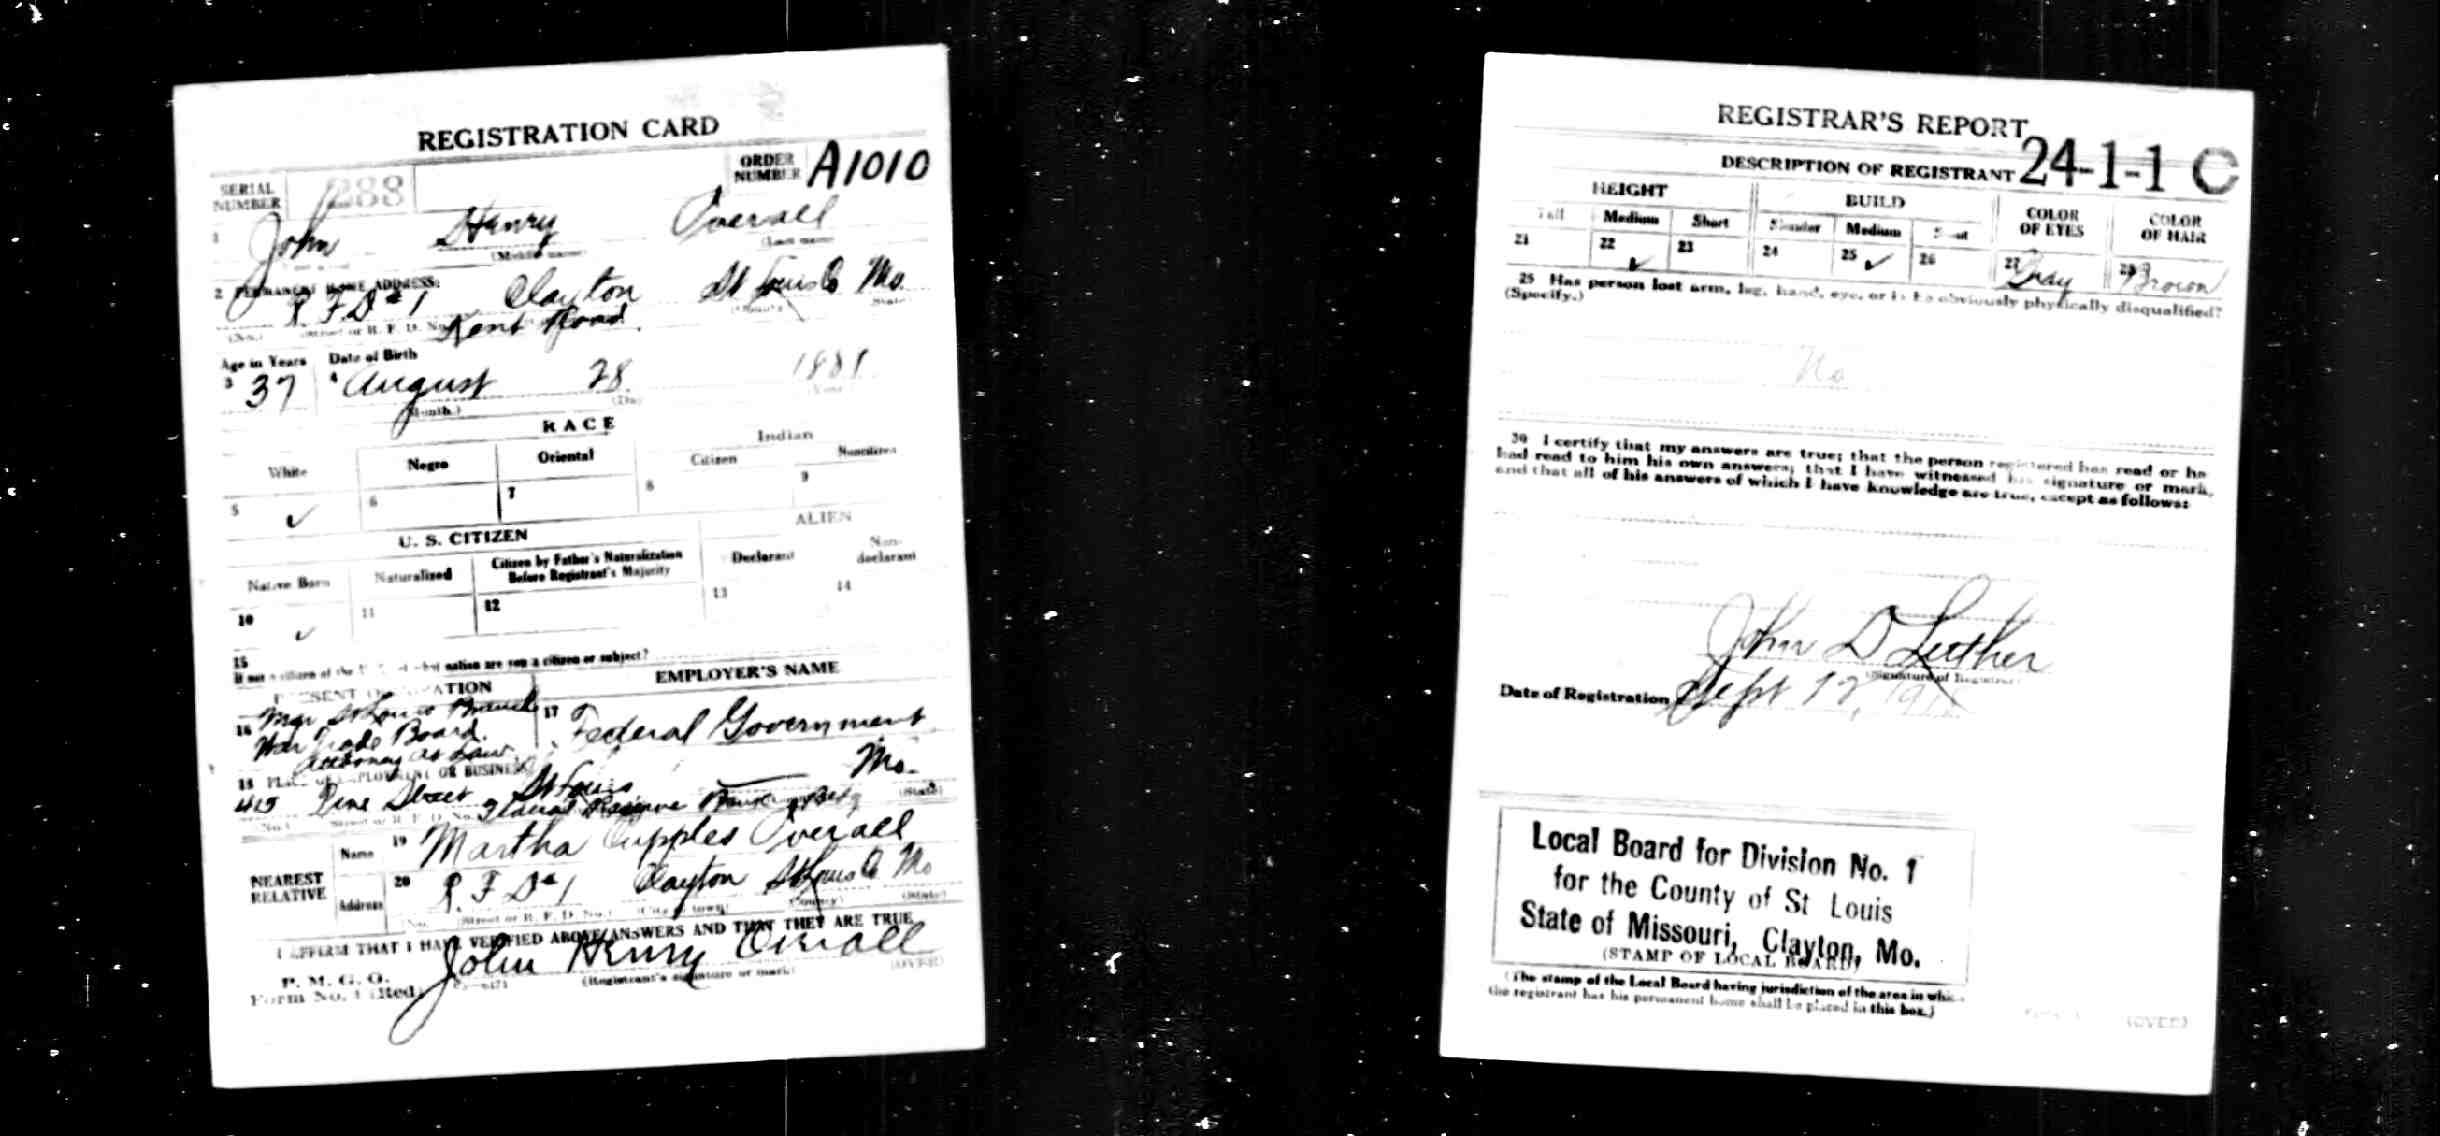 REGISTRATION CARD
SERIAL NUMBER 288 ORDER NUMBER A1010
1 John Henry Overall
(Middle name) (Last name)
2 PERMANENT HOME ADDRESS:
R. F. D #1 Clayton St Louis Co Mo.
(No.) (Street or R. F. D. No.) Kent Road (State)
Age in Years Date of Birth
3 37 4 August 28 1881
(Month.) (Day) (Year)
RACE
White Negro Oriental Indian
Citizen Noncitizen
5 ✓ 6 7 8 9
U. S. CITIZEN ALIEN
Native Born Naturalized Citizen by Father's Naturalization Before Registrant's Majority Declarant Non-declarant
10 ✓ 11 12 13 14
15 If not a citizen of the U. S., of what nation are you a citizen or subject?
PRESENT OCCUPATION EMPLOYER'S NAME
16 Mgr St Louis Branch 17 Federal Government
War Trade Board.
Attorney at Law
18 PLACE OF EMPLOYMENT OR BUSINESS:
415 Pine Street St Louis Mo.
(No.) (Street or R. F. D. No.) Federal Reserve Bank Bldg (State)
NEAREST RELATIVE Name 19 Martha Cupples Overall
Address 20 R F D #1 Clayton St Louis Co Mo
(No.) (Street or R. F. D. No.) (City or town) (County) (State)
I AFFIRM THAT I HAVE VERIFIED ABOVE ANSWERS AND THAT THEY ARE TRUE
P. M. G. O.
Form No. 1 (Red) John Henry Overall
(Registrant's signature or mark) (OVER)
REGISTRAR'S REPORT
24-1-1 C
DESCRIPTION OF REGISTRANT
HEIGHT BUILD COLOR OF EYES COLOR OF HAIR
Tall Medium Short Slender Medium Stout
21 22 ✓ 23 24 25 ✓ 26 27 Gray 28 Brown
29 Has person lost arm, leg, hand, eye, or is he obviously physically disqualified?
(Specify.)
No
30 I certify that my answers are true; that the person registered has read or has
had read to him his own answers; that I have witnessed his signature or mark,
and that all of his answers of which I have knowledge are true, except as follows:
John D Luther
(Signature of Registrar)
Date of Registration Sept 12, 1918
Local Board for Division No. 1
for the County of St Louis
State of Missouri, Clayton, Mo.
(STAMP OF LOCAL BOARD)
(The stamp of the Local Board having jurisdiction of the area in which
the registrant has his permanent home shall be placed in this box.)
(OVER)